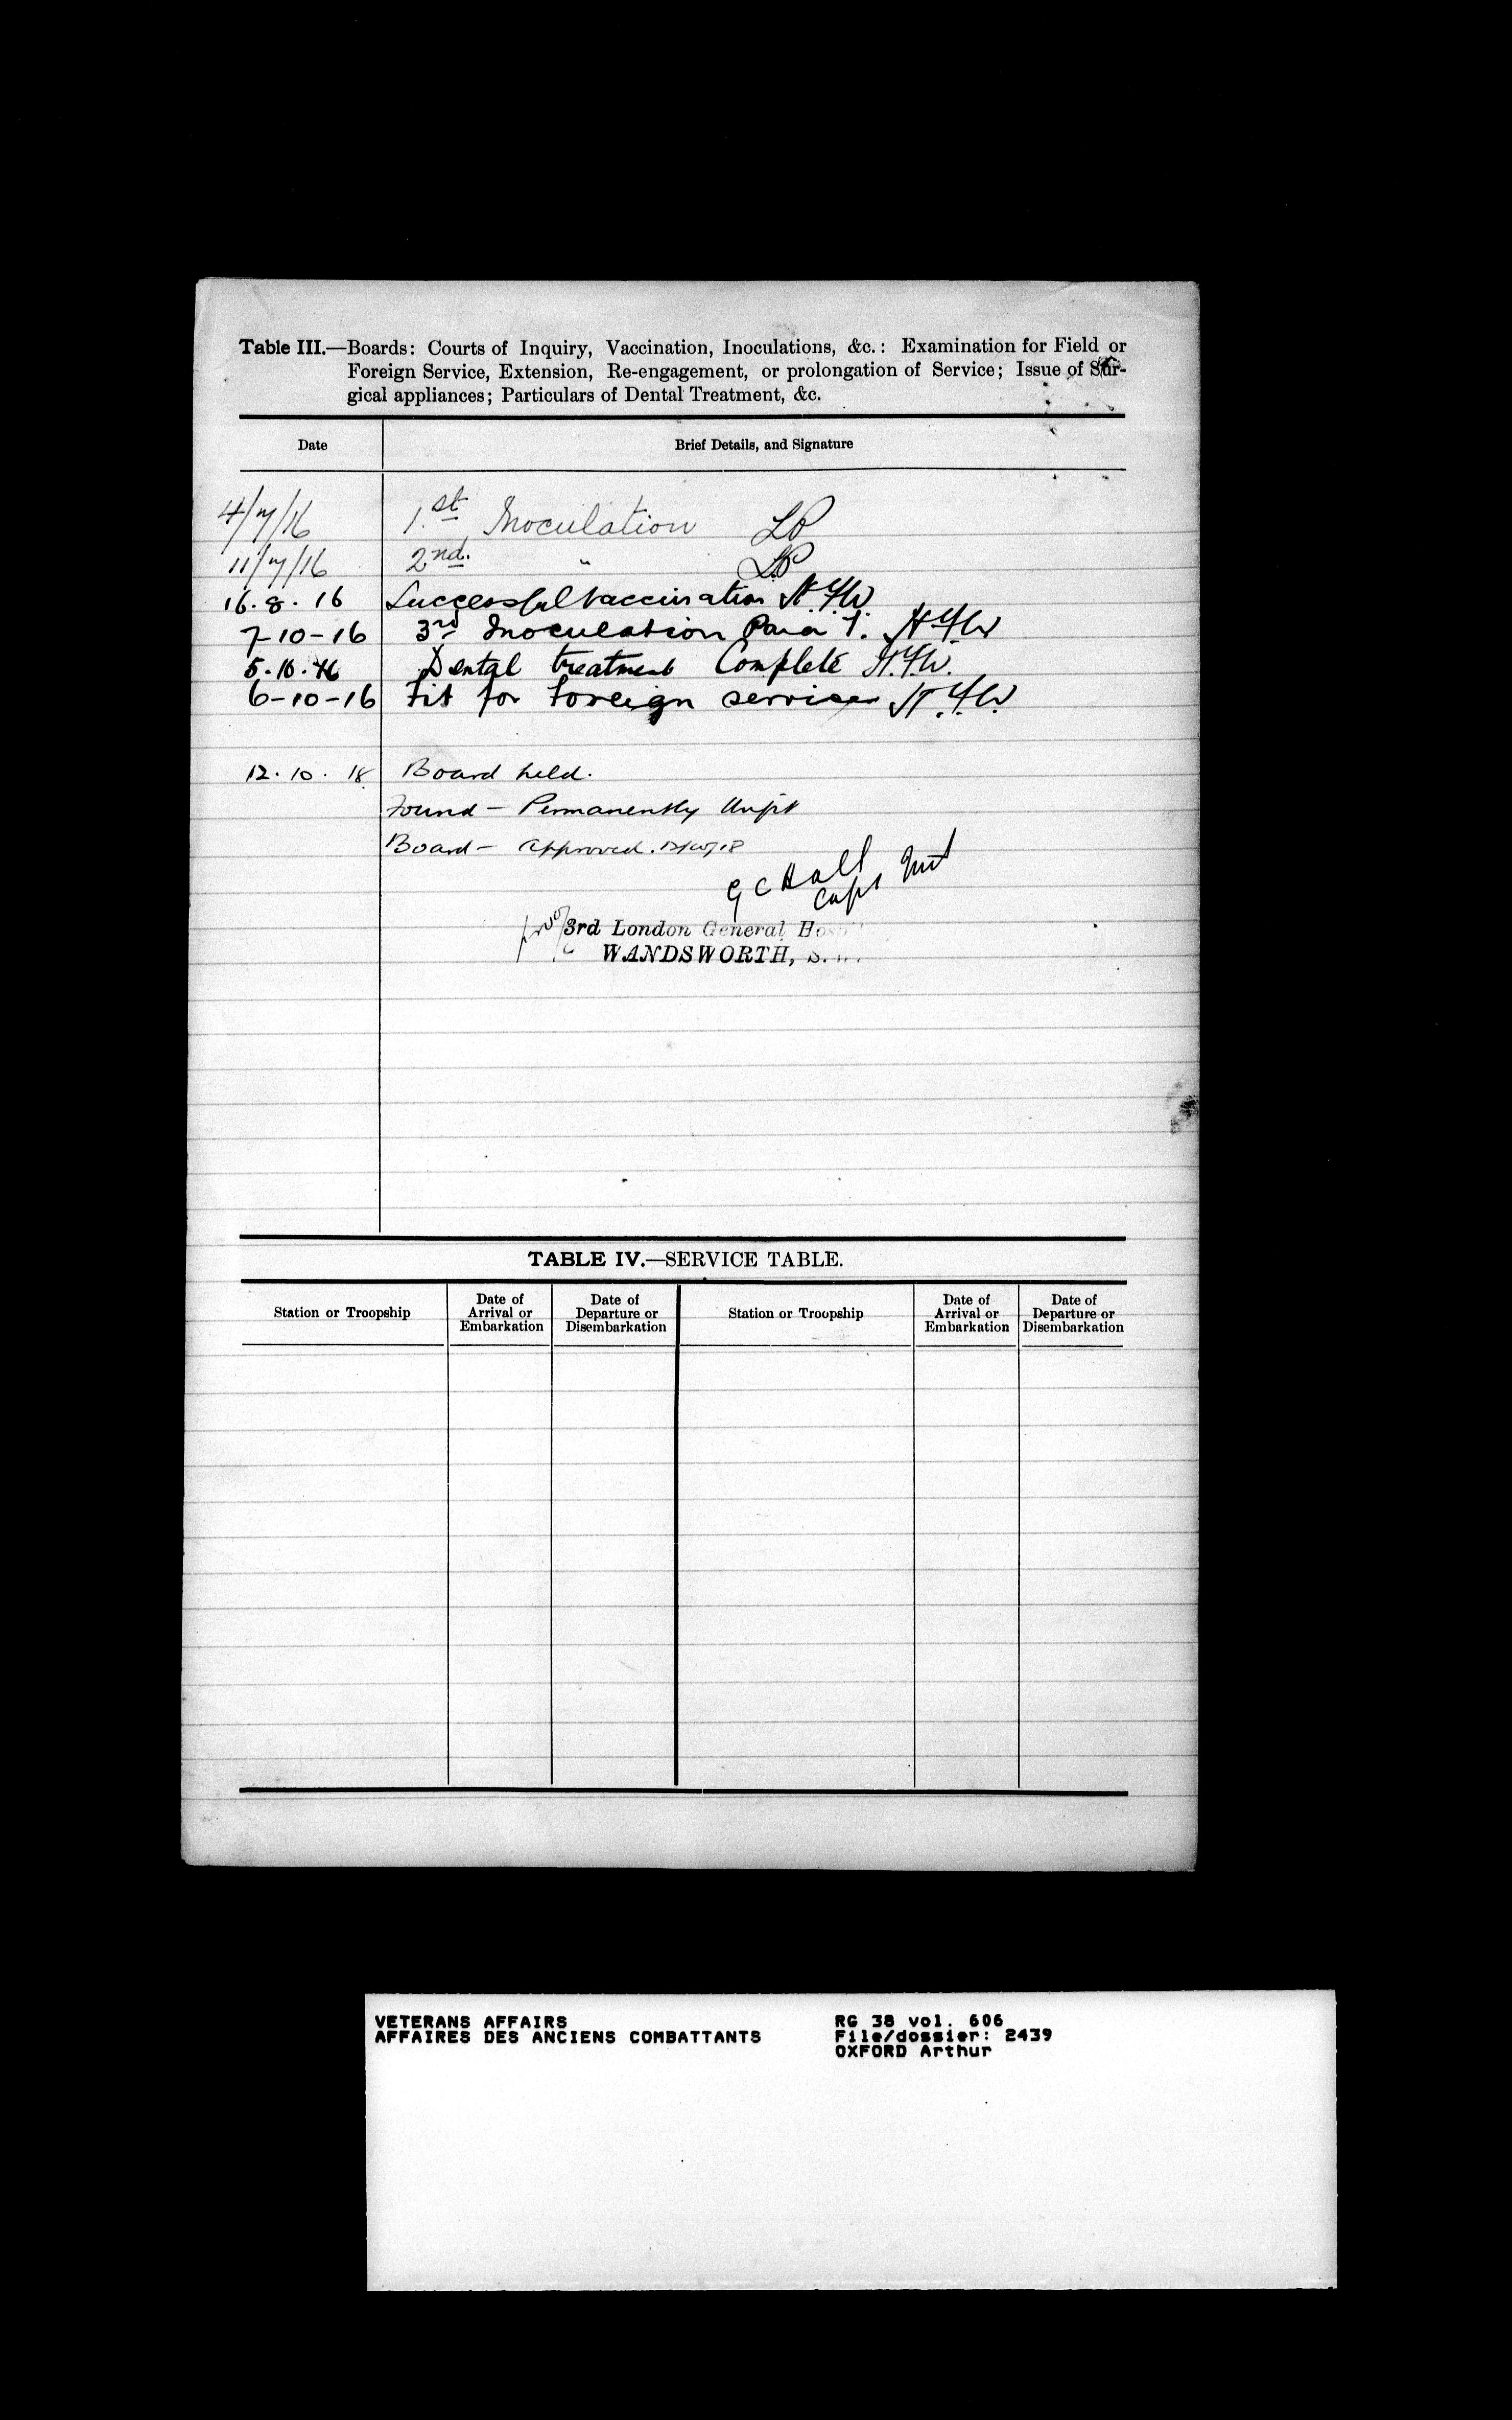 Table III.—Boards: Courts of Inquiry, Vaccination, Inoculations, &c.: Examination for Field or
Foreign Service, Extension, Re-engagement, or prolongation of Service; Issue of Sur-
gical appliances; Particulars of Dental Treatment, &c.
Date Brief Details, and Signature
4/7/16 1.st Inoculation LP
11/7/16 2nd. " LP
16.8.16 Successful Vaccination
7-10-16 3rd Inoculation Para T.
5.10.16 Dental treatment Complete
6-10-16 Fit for Foreign service
12.10.18 Board held.
Found — Permanently Unfit
Board — Approved.
G C Hall
Capt
3rd London General Hosp
WANDSWORTH, S.
TABLE IV.—SERVICE TABLE.
Station or Troopship Date of Arrival or Embarkation Date of Departure or Disembarkation Station or Troopship Date of Arrival or Embarkation Date of Departure or Disembarkation
VETERANS AFFAIRS RG 38 vol. 606
AFFAIRES DES ANCIENS COMBATTANTS File/dossier: 2439
OXFORD Arthur